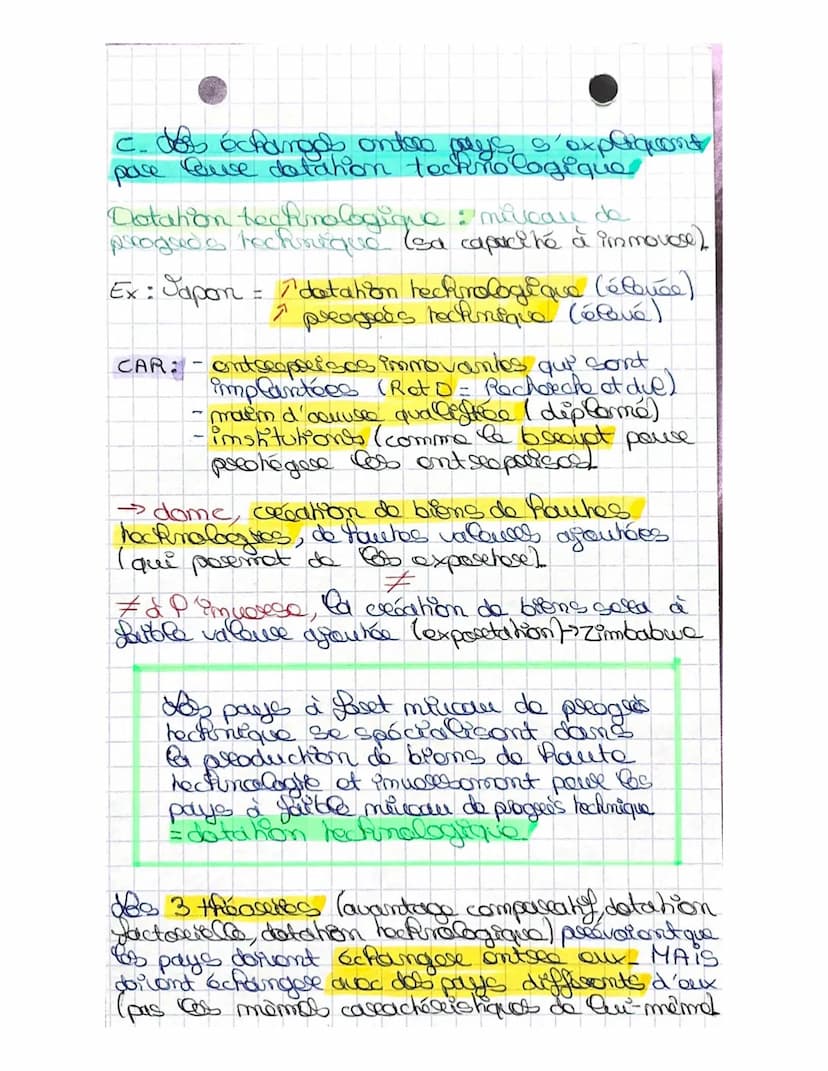 c. Les échanges entre pays s'expliquent
par leur dotation technologique
Dotation technologique : niveau de
progrès technique (sa capacité à innover)
Ex : Japon = ↗ dotation technologique (élevée)
↗ progrès technique (élevé)
CAR : - entreprises innovantes qui sont
implantées (R et D = Recherche et dvl)
- main d'œuvre qualifiée (diplômé)
- institutions (comme le brevet pour
protéger les entreprises)
→ donc, création de biens de hautes
technologies, de hautes valeurs ajoutées
(qui permet de les exporter)
≠
≠ à l'inverse, la création de biens sera à
faible valeur ajoutée (exportation) → Zimbabwe
Les pays à fort niveau de progrès
technique se spécialisent dans
la production de biens de haute
technologie et inversement pour les
pays à faible niveau de progrès technique
= dotation technologique
Les 3 théories (avantage comparatif, dotation
factorielle, dotation technologique) prévoient que
les pays doivent échanger entre eux. MAIS
doivent échanger avec des pays différents d'eux
(pas les mêmes caractéristiques de lui-même)